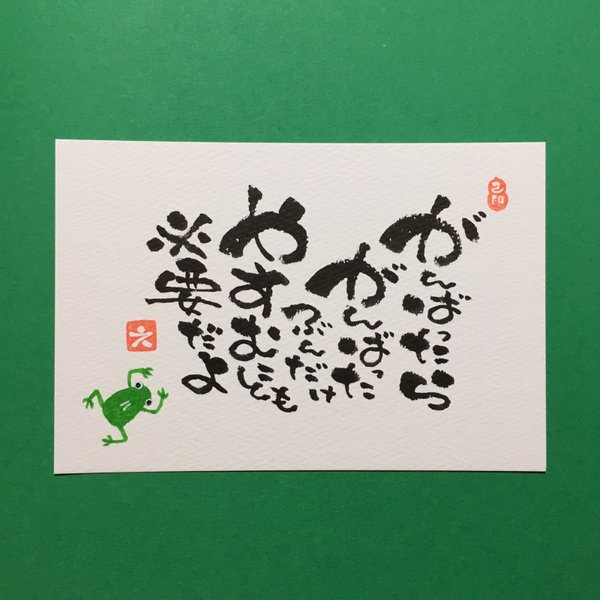 がんばったら
がんばった
ぶんだけ
やすむことも
必要だよ
六